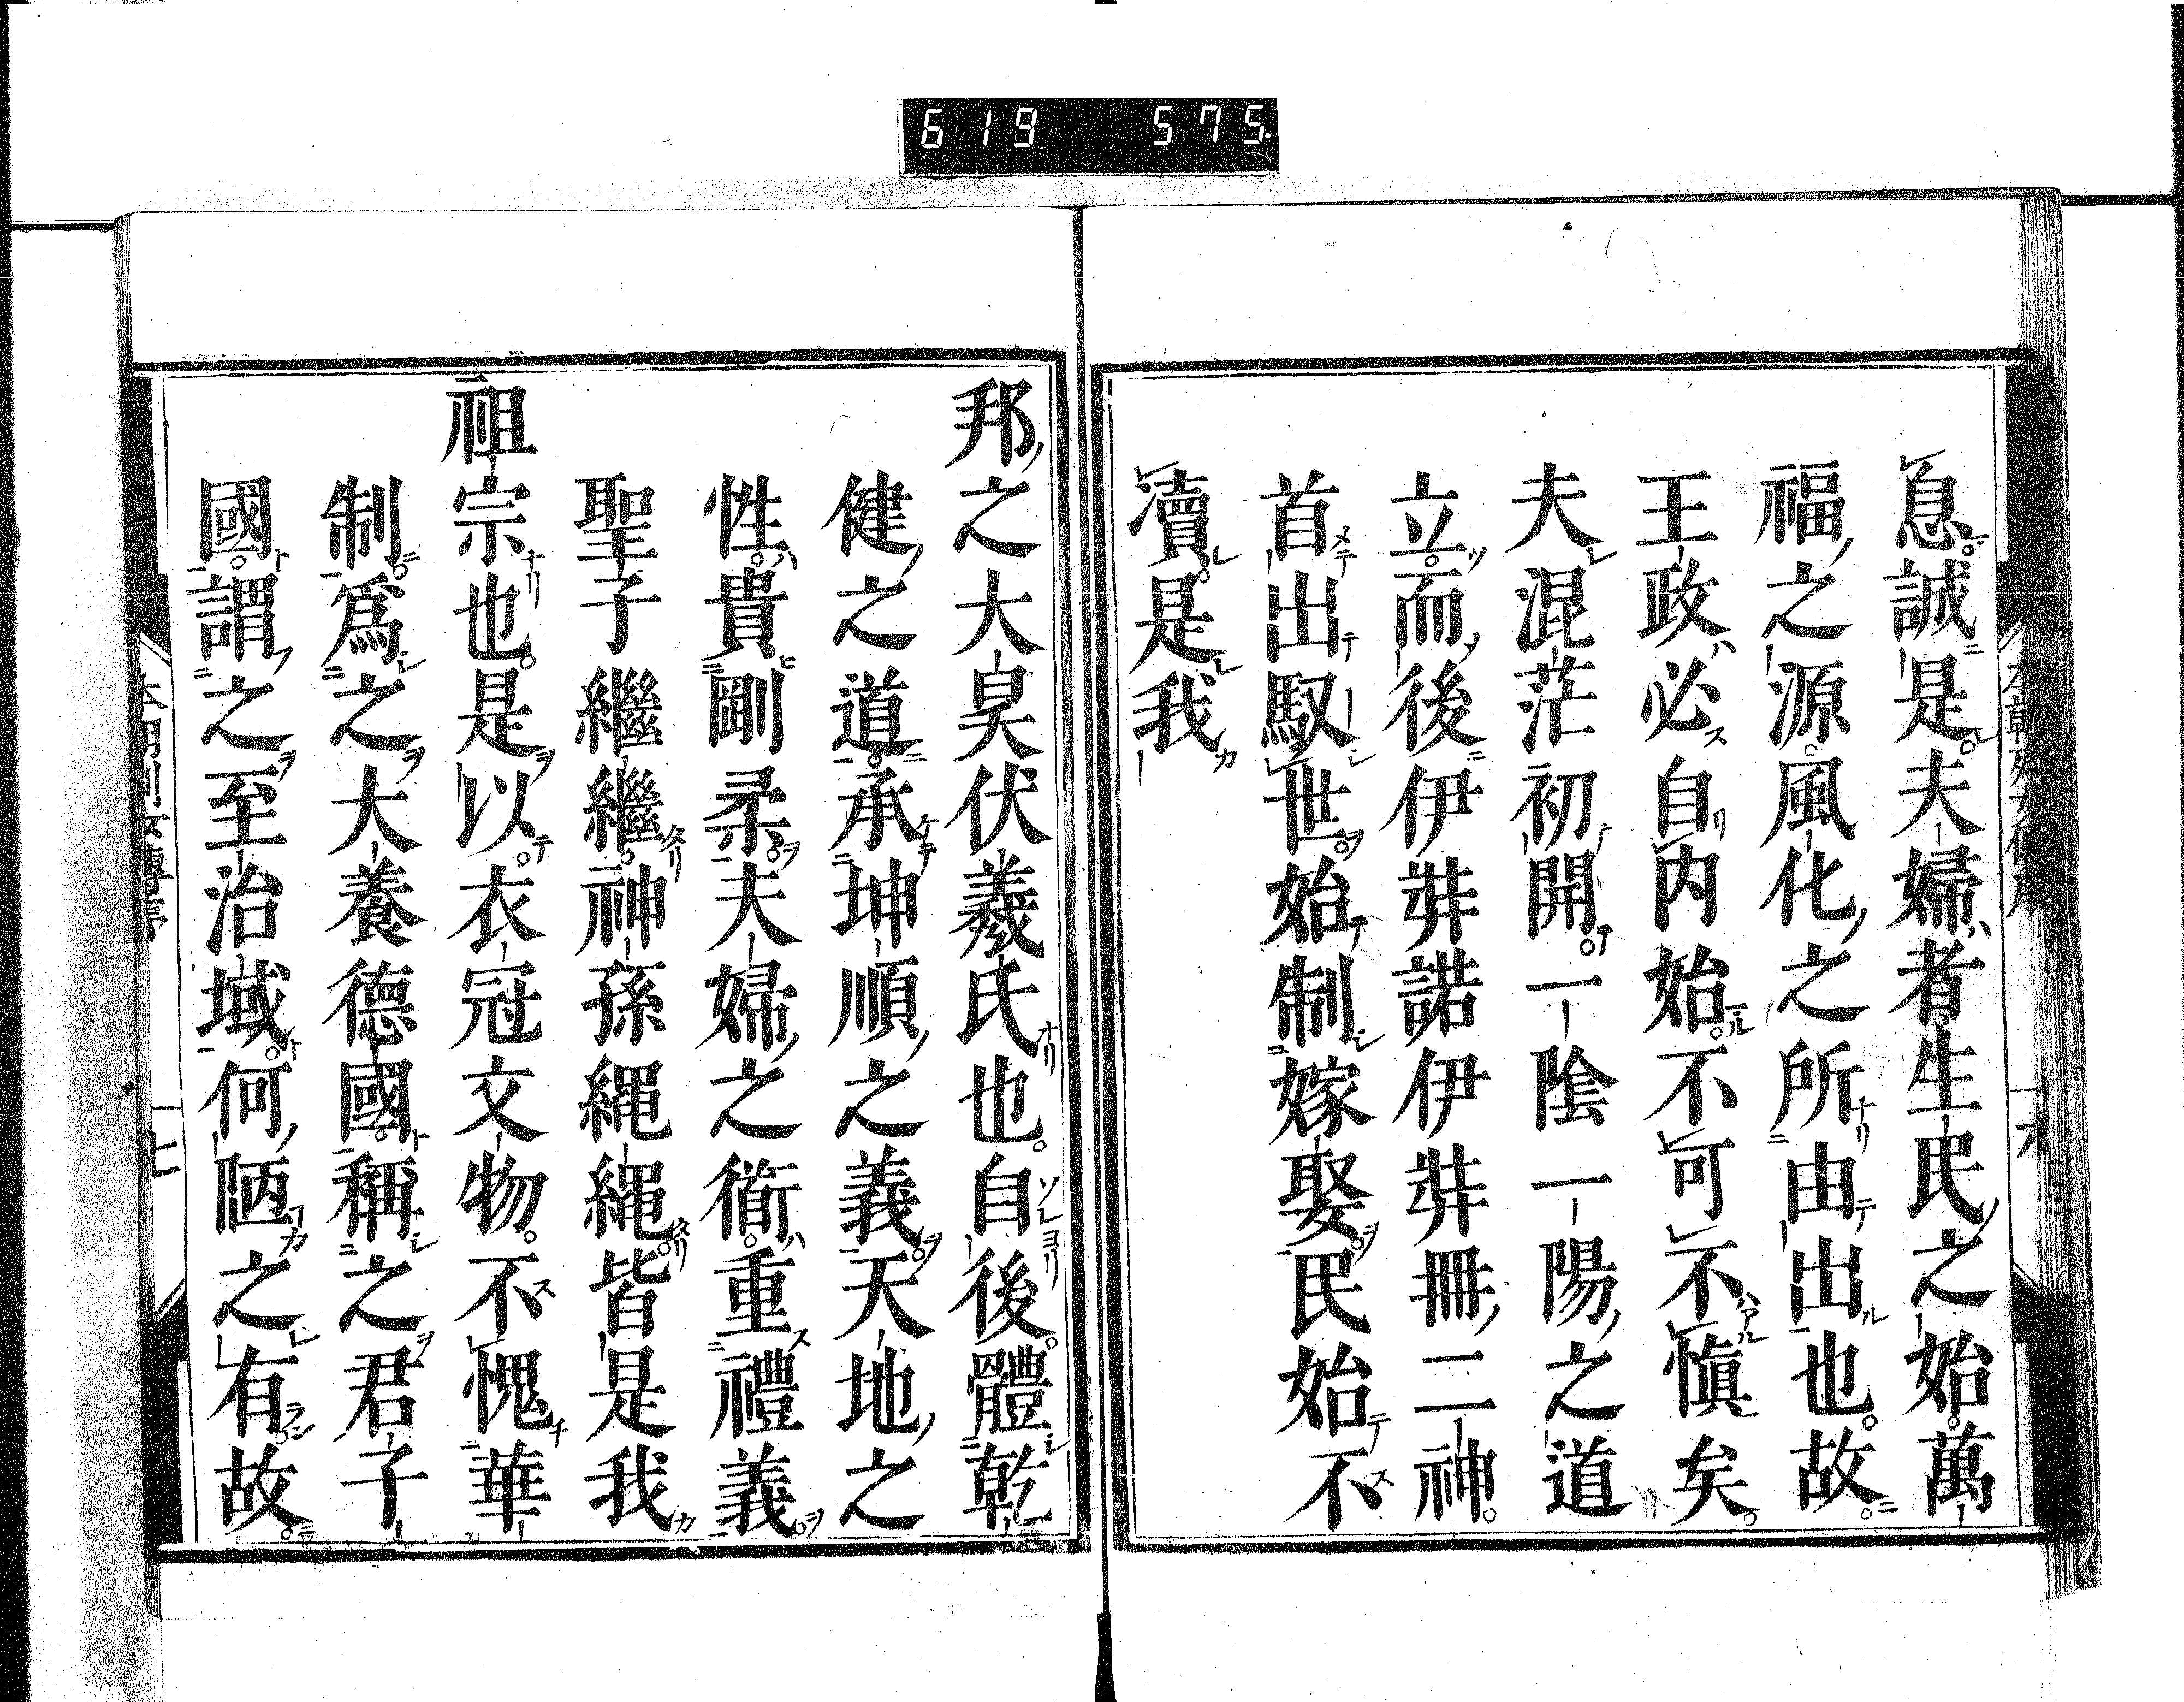 619 575
息誠是夫婦者生民之始萬
福之源風化之所由出也故
王政必自内始不可不愼矣
夫混茫初開一陰一陽之道
立而後伊弉諾伊弉冊二神
首出馭世始制嫁娶民始不
瀆是我
邦之大昊伏羲氏也自後體乾
健之道承坤順之義天地之
性貴剛柔夫婦之衜重禮義
聖子繼繼神孫繩繩皆是我
祖宗也是以衣冠文物不愧華
制爲之大養德國稱之君子
國謂之至治域何陋之有故